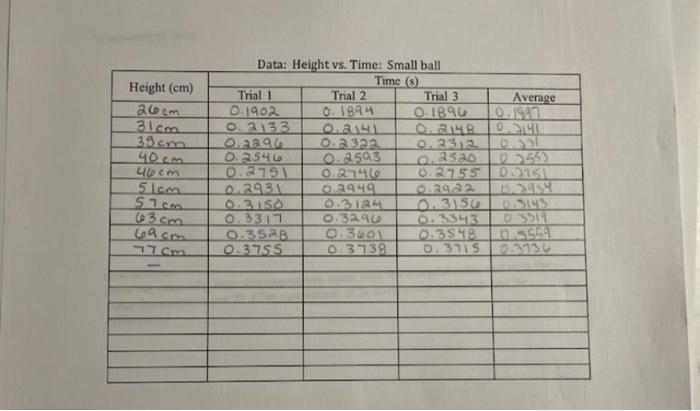 Data: Height vs. Time: Small ball
Height (cm) Time (s)
Trial 1 Trial 2 Trial 3 Average
26cm 0.1902 0.1894 0.1896 0.1897
31cm 0.2133 0.2141 0.2148 0.2141
0.2296 0.2322 0.2312
40 cm 0.2546 0.2503 0.2520
46cm 0.2751 0.2746 0.2755 0.2751
51cm 0.2931 0.2949 0.2922
57cm 0.3150 0.3124 0.3156 0.3143
63cm 0.3317 0.3296 0.3343 0.3319
69cm 0.3528 0.3601 0.3548 0.3559
77cm 0.3755 0.3738 0.3715 0.3736
—